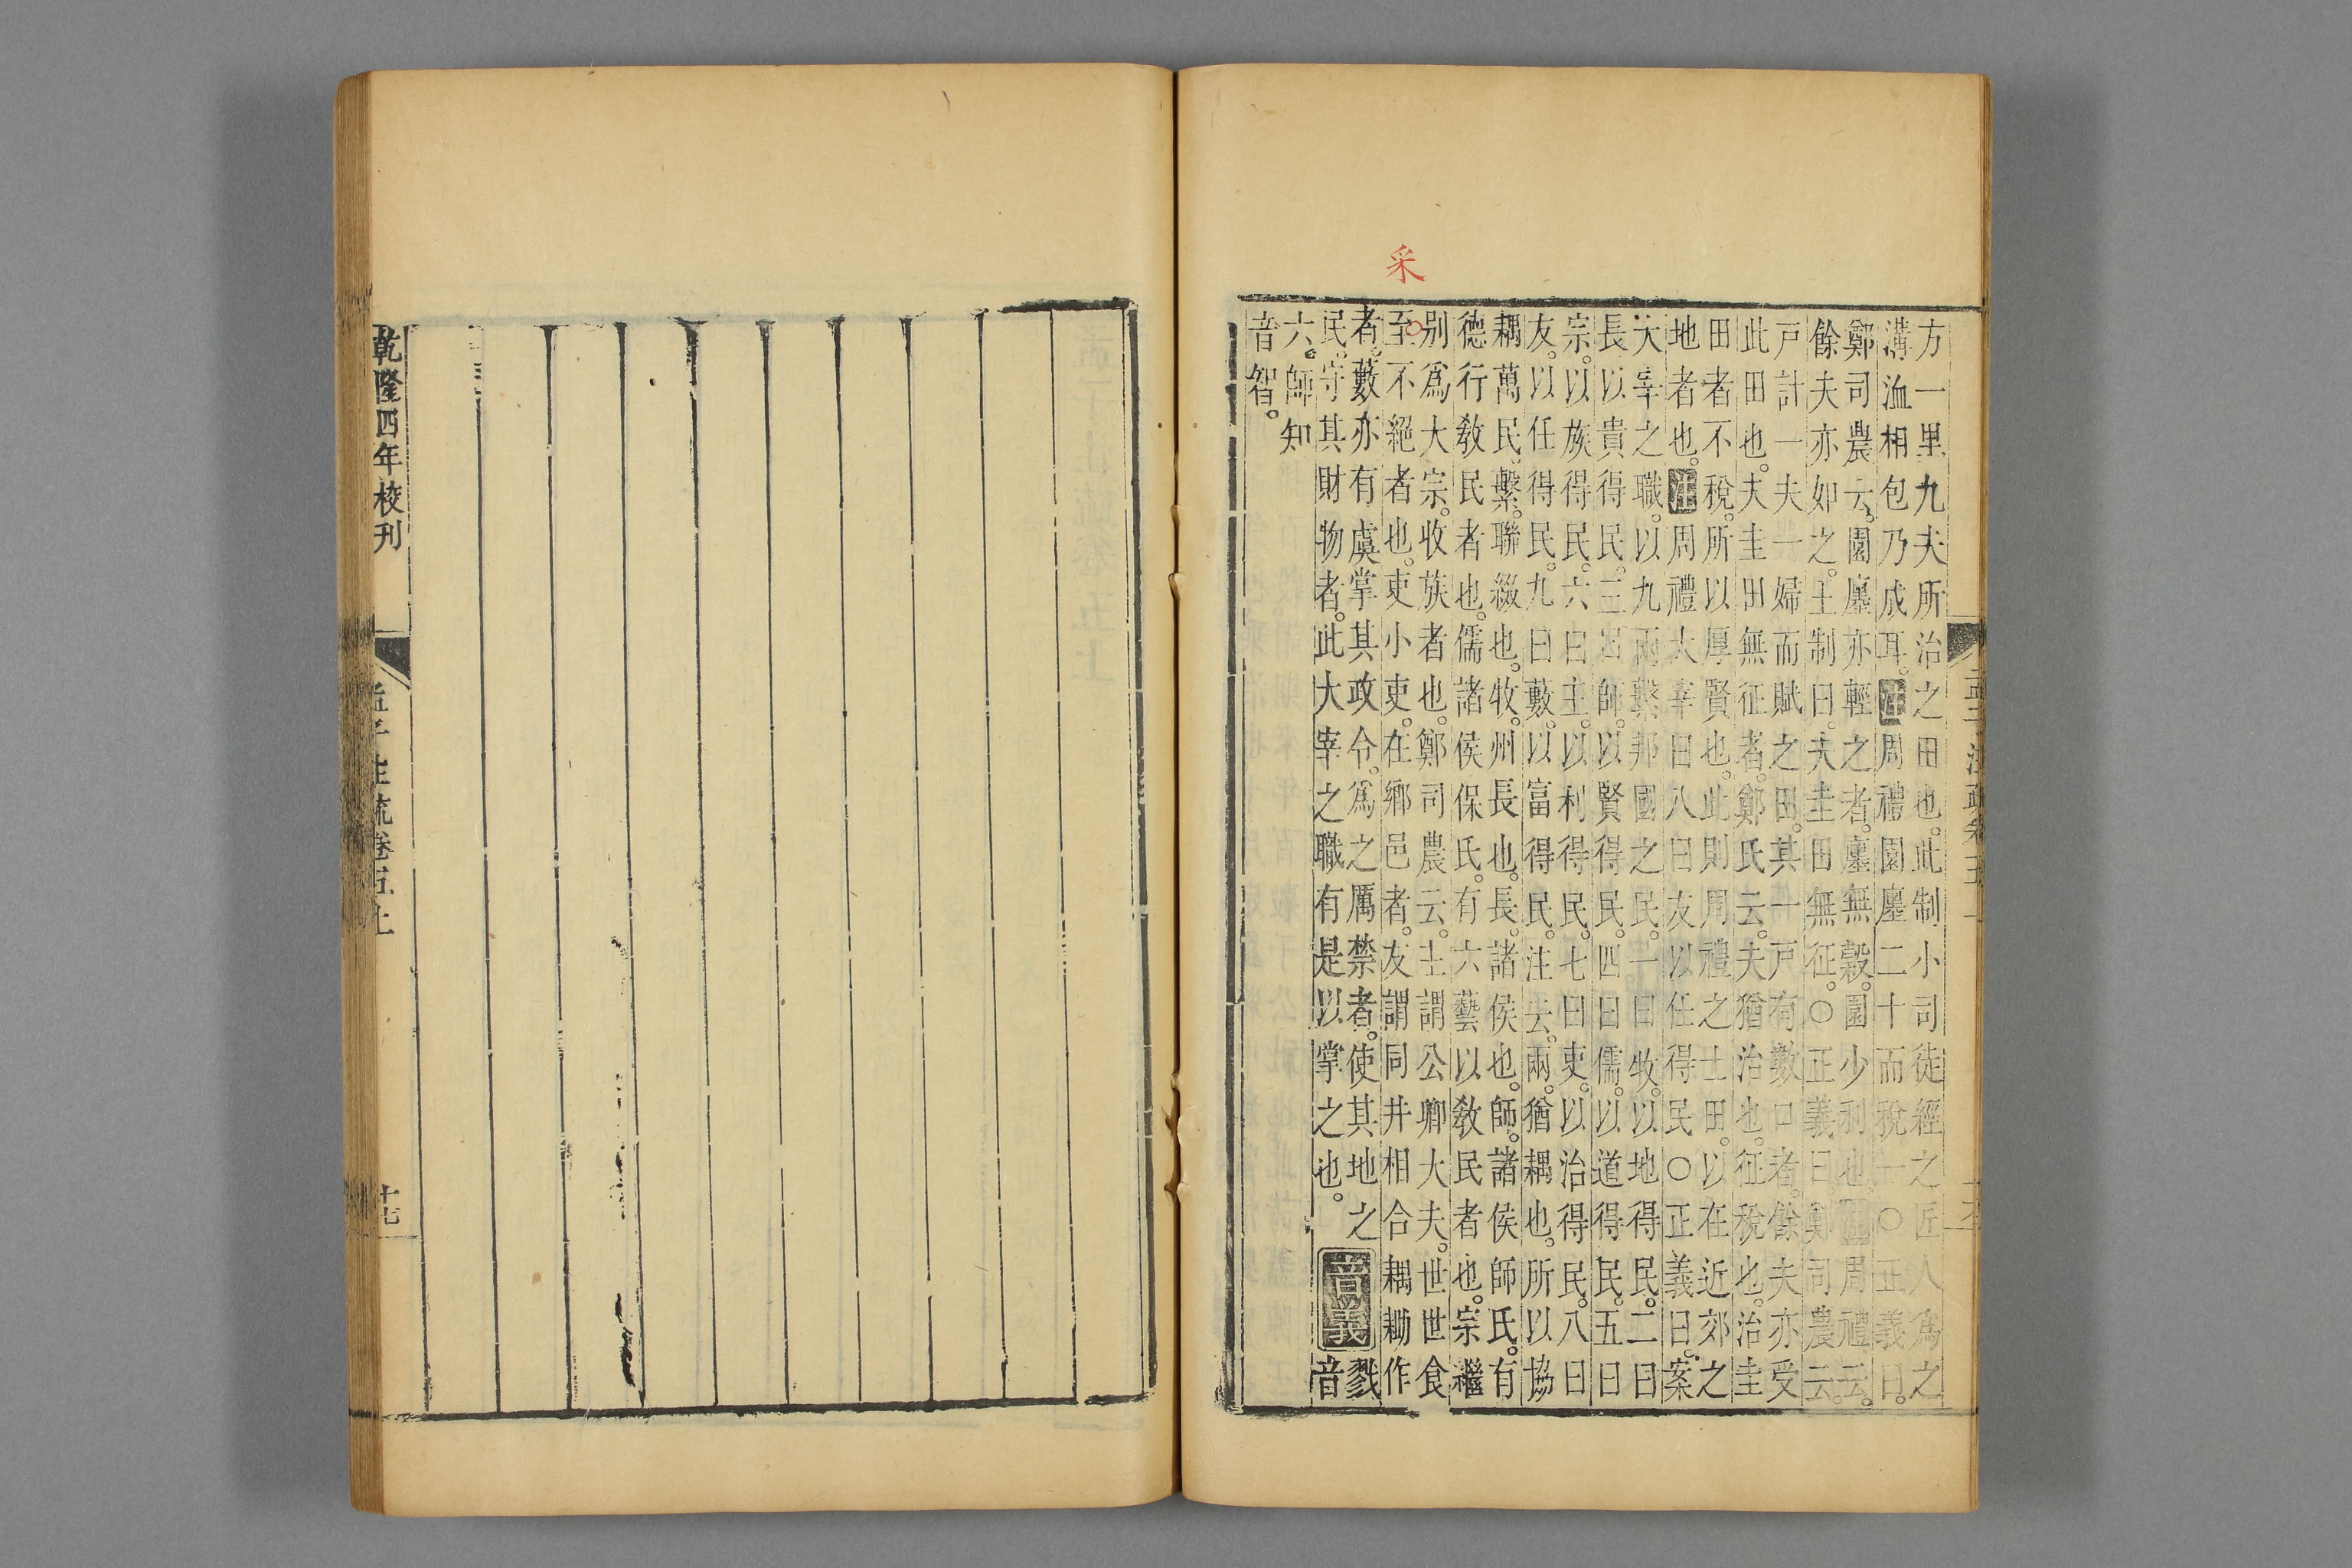 方一里九夫所治之田也。此制小司徒經之匠人爲之
溝洫相包乃成耳。注周禮園廛二十而稅一○正義曰。
鄭司農云。園廛亦輕之者。廛無穀。園少利也。注周禮云。
餘夫亦如之。王制曰。夫圭田無征。○正義曰。鄭司農云。
戸計一夫一婦而賦之田。其一戸有數口者。餘夫亦受
此田也。夫圭田無征者。鄭氏云。夫猶治也。征稅也。治圭
田者不稅。所以厚賢也。此則周禮之士田。以在近郊之
地者也。注周禮大宰曰八曰友以任得民○正義曰。案
大宰之職。以九兩繫邦國之民。一曰牧。以地得民。二曰
長以貴得民。三曰師。以賢得民。四曰儒。以道得民。五曰
宗。以族得民。六曰主。以利得民。七曰吏。以治得民。八曰
友。以任得民。九曰藪。以富得民。注云。兩。猶耦也。所以協
耦萬民。繫。聯綴也。牧。州長也。長。諸侯也。師。諸侯師氏。有
德行敎民者也。儒諸侯保氏。有六藝以敎民者也。宗繼
別爲大宗。收族者也。鄭司農云。主謂公卿大夫。世世食
采
至不絕者也。吏小吏。在鄉邑者。友謂同井相合耦耡作
者。藪亦有虞掌其政令。爲之厲禁者。使其地之
民。守其財物者。此大宰之職有是以掌之也。
音義
戮
音
六。師知
音智。
乾隆四年校刊
孟子注疏卷五上
十七